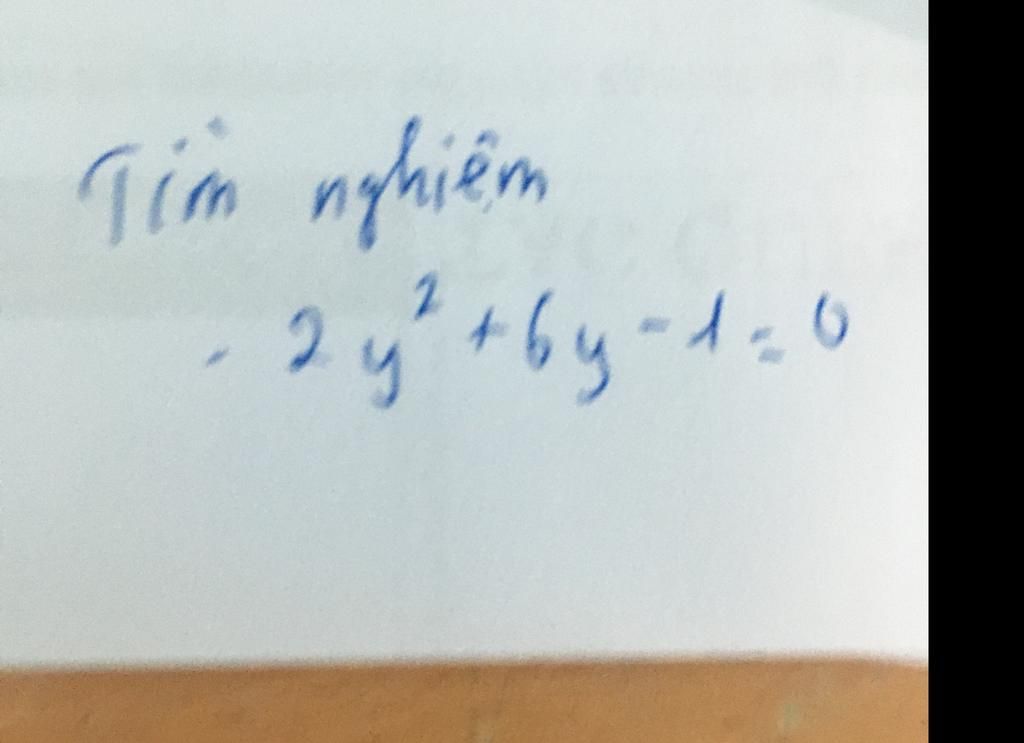 Tìm nghiệm
- 2y² + 6y - 1 = 0